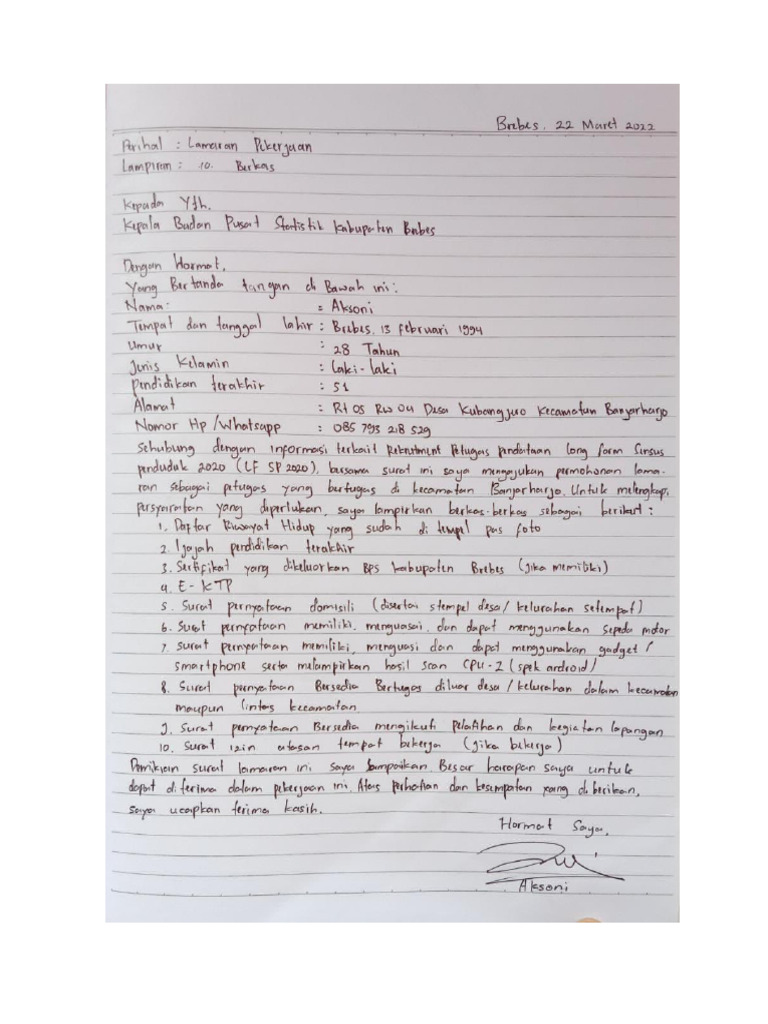 Brebes, 22 Maret 2022
Perihal : Lamaran Pekerjaan
Lampiran : 10. Berkas
Kepada Yth.
Kepala Badan Pusat Statistik Kabupaten Brebes
Dengan Hormat,
Yang Bertanda tangan di Bawah ini :
Nama : = Aksoni
Tempat dan tanggal lahir : Brebes, 13 Februari 1994
Umur : 28 Tahun
Jenis Kelamin : Laki-laki
Pendidikan terakhir : S1
Alamat : Rt 05 Rw 04 Desa Kubangjuro Kecamatan Banjarharjo
Nomor Hp / Whatsapp : 085 793 218 529
Sehubung dengan informasi terkait Rekrutment Petugas pendataan long form Sensus
penduduk 2020 (LF SP 2020), bersama surat ini saya mengajukan permohonan lama-
ran sebagai petugas yang bertugas di kecamatan Banjarharjo. Untuk melengkapi
persyaratan yang diperlukan, saya lampirkan berkas-berkas sebagai berikut :
1. Daftar Riwayat Hidup yang sudah di tempel pas foto
2. Ijazah pendidikan terakhir
3. Sertifikat yang dikeluarkan BPS Kabupaten Brebes (jika memiliki)
4. E-KTP
5. Surat pernyataan domisili (disertai stempel desa/kelurahan setempat)
6. Surat pernyataan memiliki, menguasai, dan dapat menggunakan sepeda motor
7. Surat pernyataan memiliki, menguasi dan dapat menggunakan gadget/
smartphone serta melampirkan hasil scan CPU-Z (spek android/
8. Surat pernyataan Bersedia Bertugas diluar desa/kelurahan dalam kecamatan
maupun lintas kecamatan
9. Surat pernyataan Bersedia mengikuti pelatihan dan kegiatan lapangan
10. Surat izin atasan tempat bekerja (jika bekerja)
Demikian surat lamaran ini saya sampaikan. Besar harapan saya untuk
dapat diterima dalam pekerjaan ini. Atas perhatian dan kesempatan yang di berikan,
saya ucapkan terima kasih.
Hormat Saya,
Aksoni